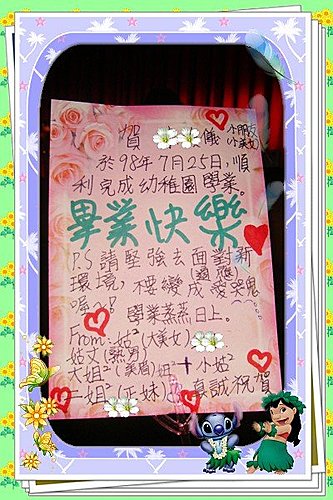 賀 儀 小朋友
(小美女)
於98年7月25日,順
利完成幼稚園學業。
畢業快樂
P.S 請堅強去面對新
環境,(適應) 不要變成愛哭鬼
喔~?
學業蒸蒸日上。
From: 姑²(大美女)
姑丈(熱男)
大姐²(美眉)妞² + 小姑²
二姐²(正妹) 真誠祝賀